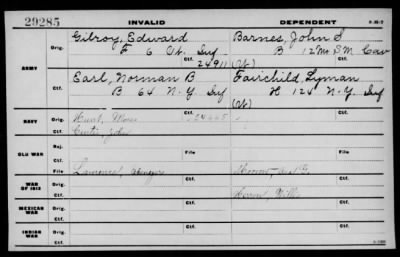 29285 INVALID DEPENDENT
Orig. Gilroy, Edward Barnes, John S
F 6 Ct. Inf B 12 Mo S M Cav
Ctf. 24911 (Ct) Ctf.
ARMY
Orig. Earl, Norman B Fairchild, Lyman
B 64 N.Y. Inf H 124 N.Y. Inf
Ctf. (Ct)
NAVY Orig. Hunt,
Ctf. Curtis, John Ctf.
OLD WAR Rej.
Ctf. Ctf.
File File
WAR OF 1812 Orig.
Ctf.
MEXICAN WAR Orig.
Ctf.
INDIAN WAR Orig.
Ctf.